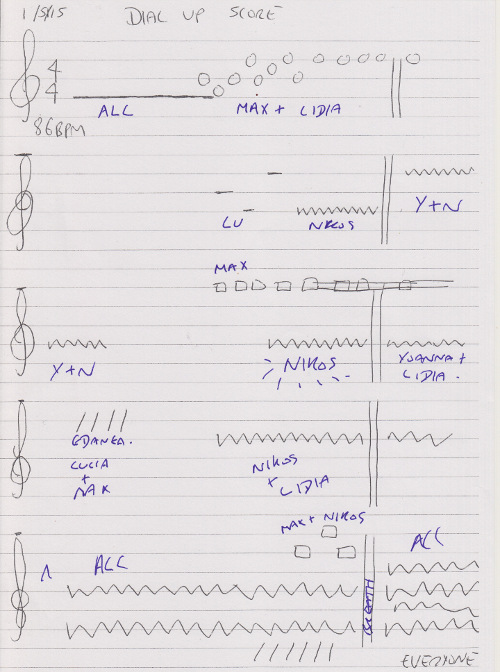 1/5/15 DIAL UP SCORE
4
4
ALL MAX + LIDIA
86BPM
LU NIKOS Y+N
MAX
Y+N NIKOS YOANNA +
LIDIA.
LUCIA
+
MAX
NIKOS
+ LIDIA
MAX + NIKOS
ALL ALL
EVERYONE